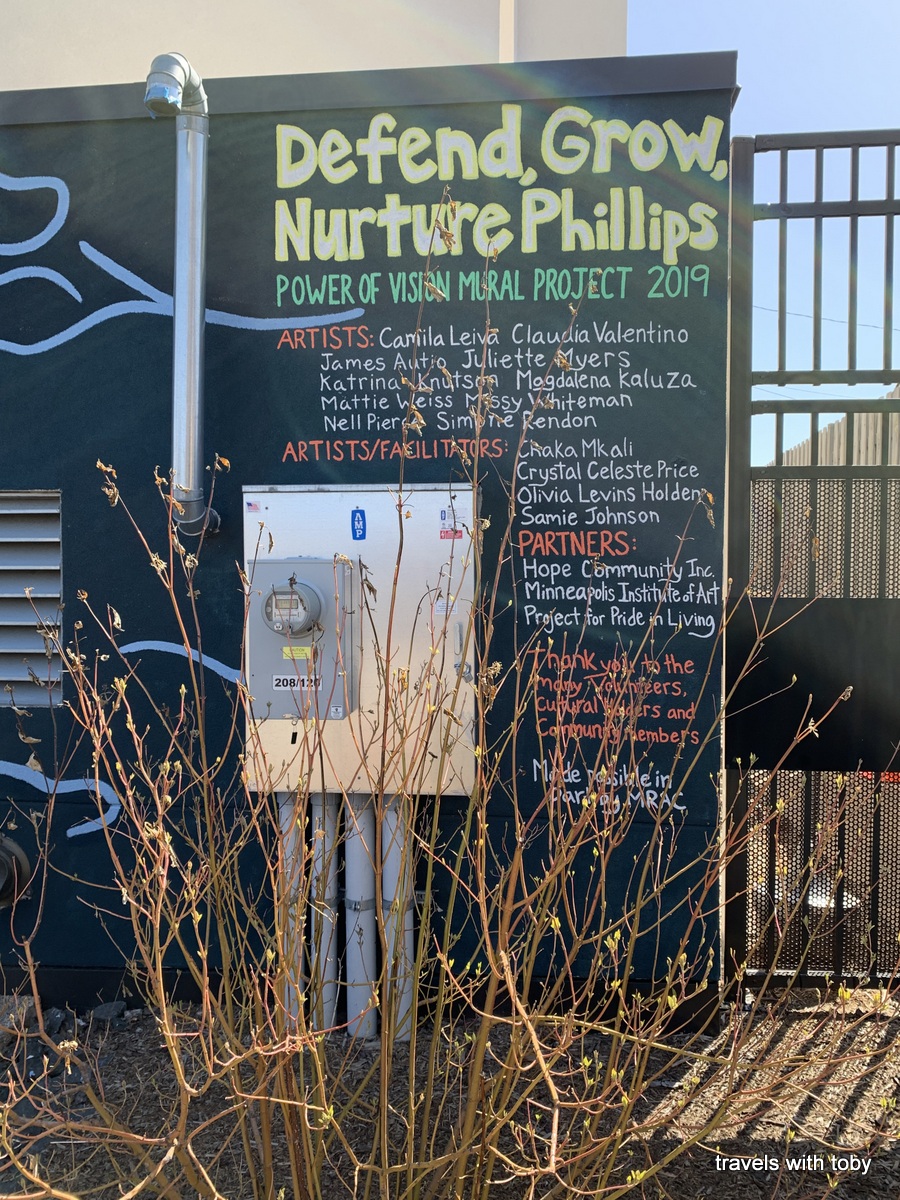 Defend, Grow,
Nurture Phillips
POWER OF VISION MURAL PROJECT 2019
ARTISTS: Camila Leiva Claudia Valentino
James Autio Juliette Myers
Katrina Knutson Magdalena Kaluza
Mattie Weiss Missy Whiteman
Nell Pierce Simone Rendon
ARTISTS/FACILITATORS: Chaka Mkali
Crystal Celeste Price
Olivia Levins Holden
Samie Johnson
PARTNERS:
Hope Community Inc.
Minneapolis Institute of Art
Project for Pride in Living
Thank you to the
many volunteers,
Cultural and
Community Members
Made possible in
part by MRAC
AMP
208/120
travels with toby